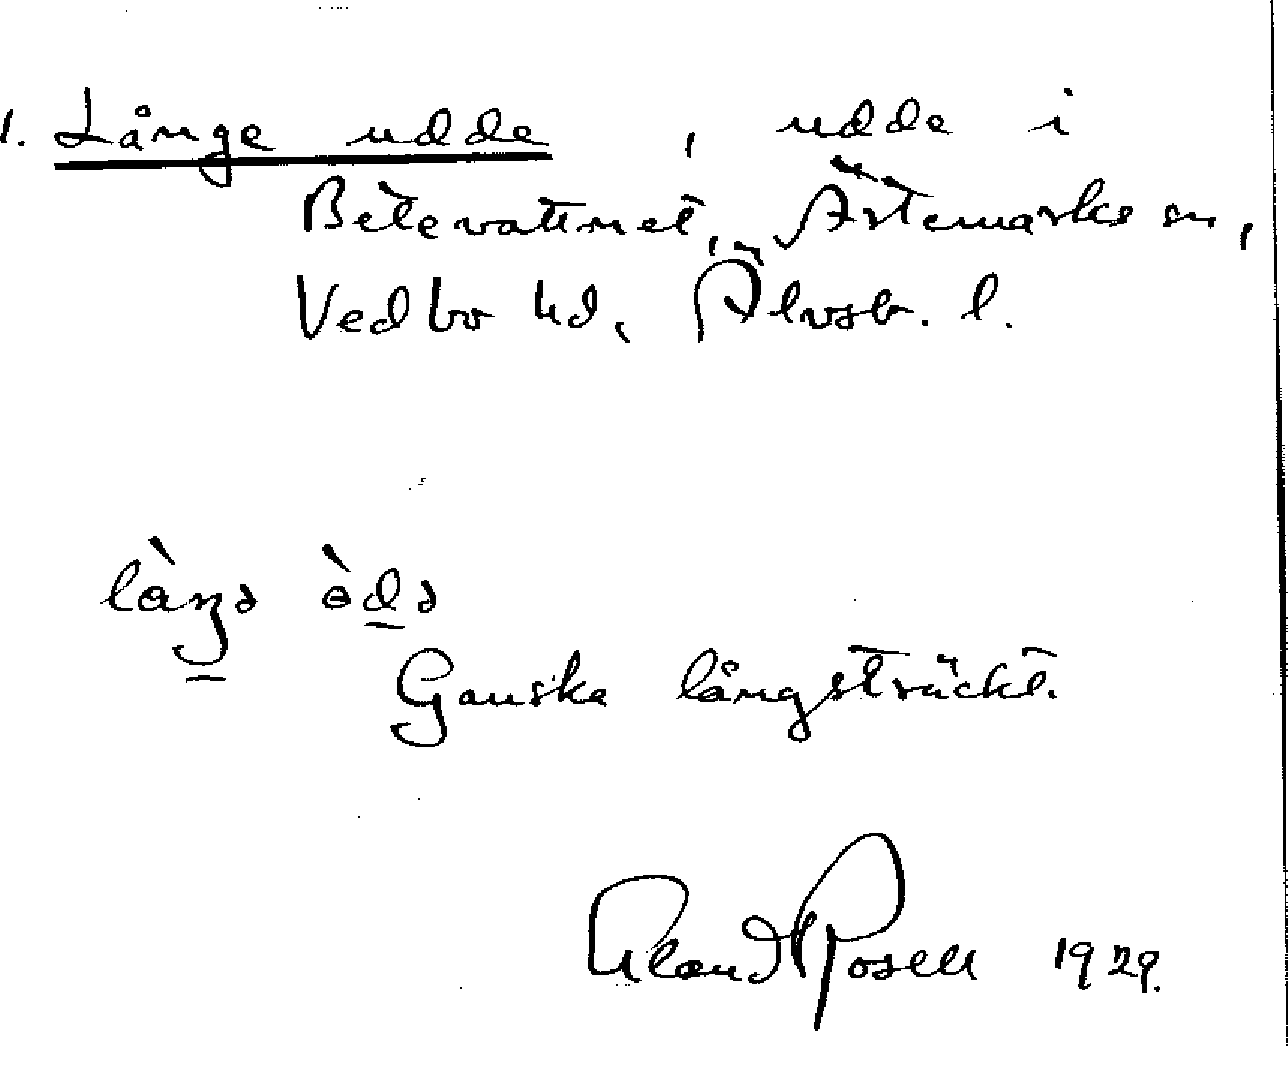 1. Långe udde, udde i
Betevattnet, Ärtemarks sn,
Vedbo hd, Älvsb. l.
låŋə òdə
Ganska långsträckt.
Rosell 1929.